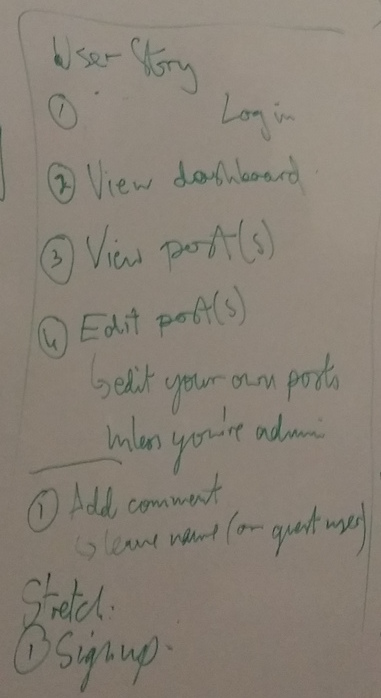 User Story
① Login
② View dashboard
③ View post(s)
④ Edit post(s)
↳ edit your own posts
unless you're admin
① Add comment
↳ leave name (or guest user)
Stretch.
① Signup.